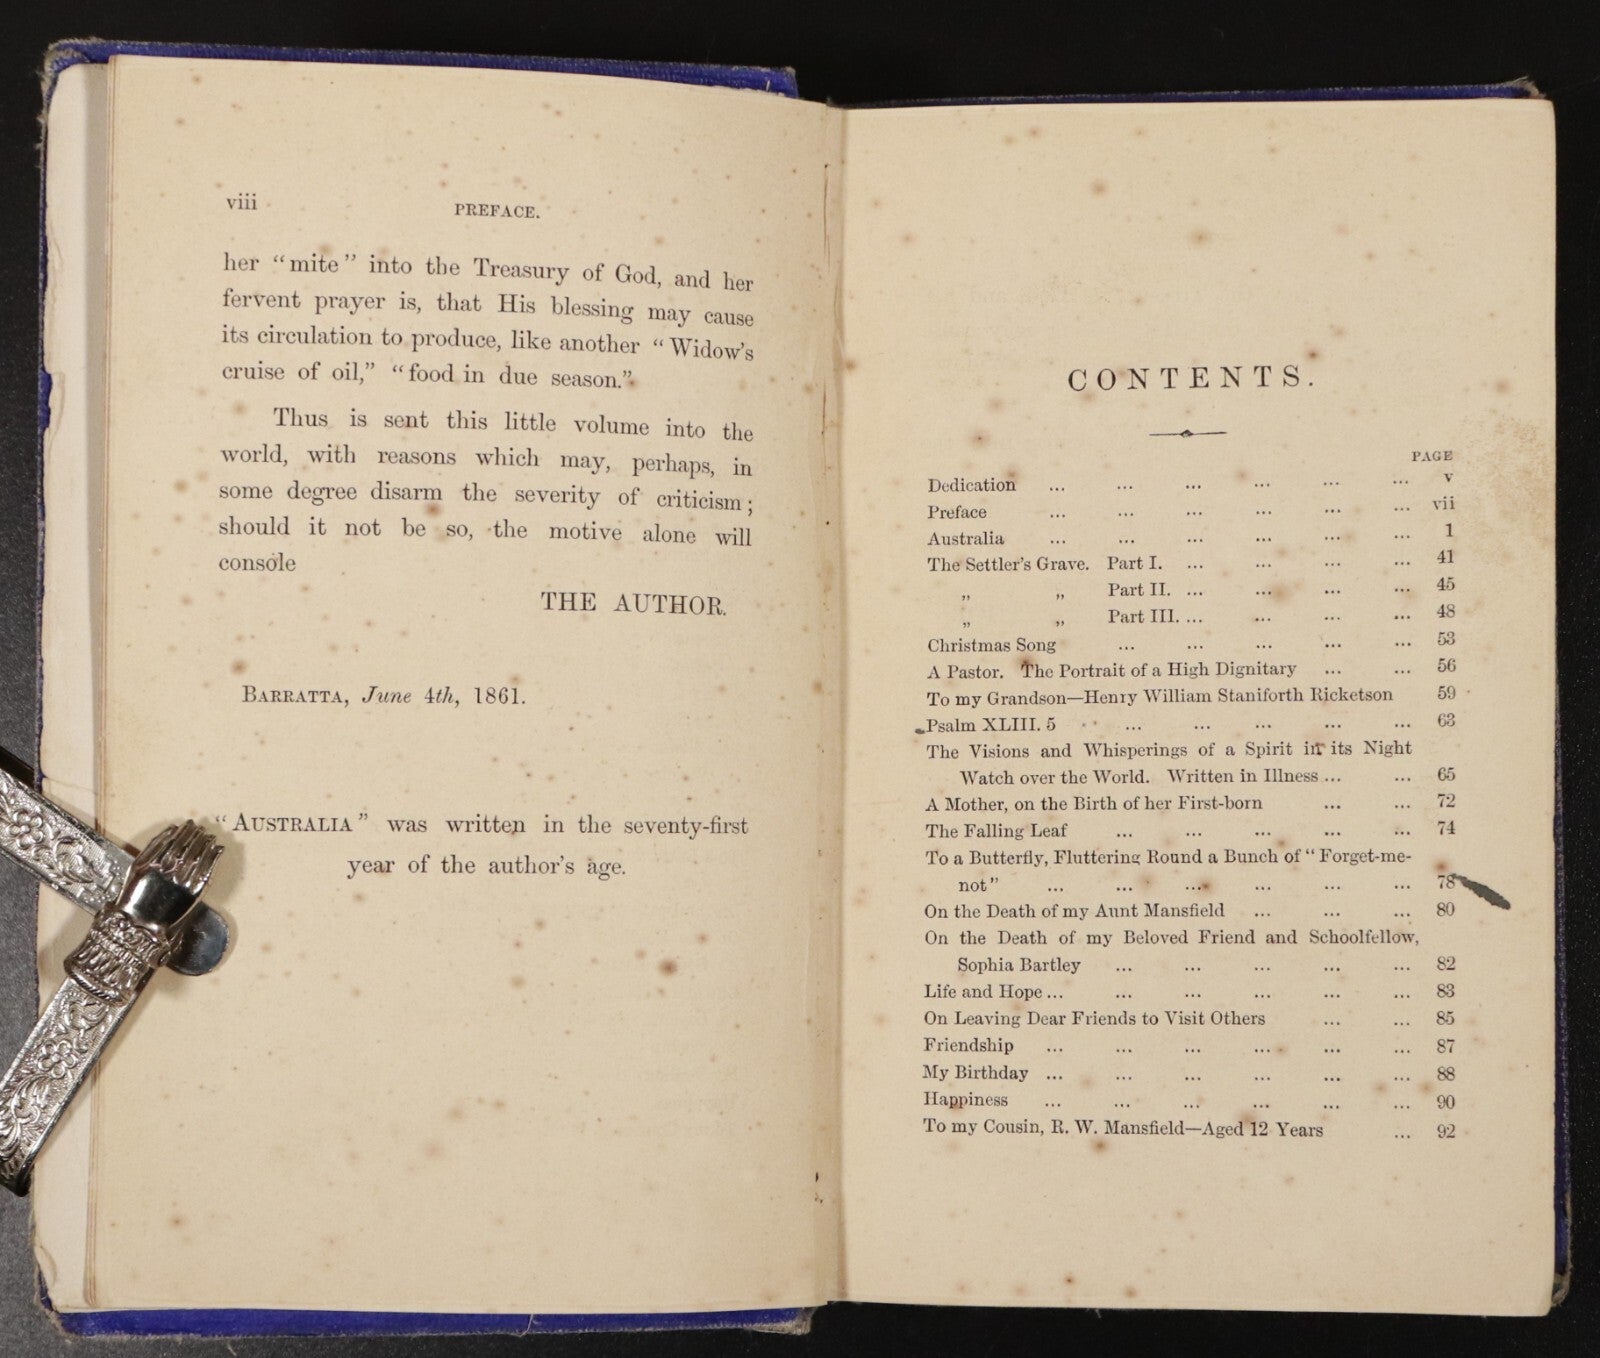 viii
PREFACE.
her “mite” into the Treasury of God, and her
fervent prayer is, that His blessing may cause
its circulation to produce, like another “Widow's
cruise of oil,” “food in due season.”
Thus is sent this little volume into the
world, with reasons which may, perhaps, in
some degree disarm the severity of criticism;
should it not be so, the motive alone will
console
THE AUTHOR.
BARRATTA, June 4th, 1861.
“AUSTRALIA” was written in the seventy-first
year of the author's age.
CONTENTS.
PAGE
Dedication ... ... ... ... ... ... v
Preface ... ... ... ... ... ... vii
Australia ... ... ... ... ... ... 1
The Settler's Grave. Part I. ... ... ... ... 41
„ „ Part II. ... ... ... ... 45
„ „ Part III. ... ... ... ... 48
Christmas Song ... ... ... ... ... 53
A Pastor. The Portrait of a High Dignitary ... ... 56
To my Grandson—Henry William Staniforth Ricketson 59
Psalm XLIII. 5 ... ... ... ... ... 63
The Visions and Whisperings of a Spirit in its Night
Watch over the World. Written in Illness ... ... 65
A Mother, on the Birth of her First-born ... ... 72
The Falling Leaf ... ... ... ... ... 74
To a Butterfly, Fluttering Round a Bunch of “Forget-me-
not” ... ... ... ... ... ... 78
On the Death of my Aunt Mansfield ... ... ... 80
On the Death of my Beloved Friend and Schoolfellow,
Sophia Bartley ... ... ... ... ... 82
Life and Hope ... ... ... ... ... ... 83
On Leaving Dear Friends to Visit Others ... ... 85
Friendship ... ... ... ... ... ... 87
My Birthday ... ... ... ... ... ... 88
Happiness ... ... ... ... ... ... 90
To my Cousin, R. W. Mansfield—Aged 12 Years ... 92